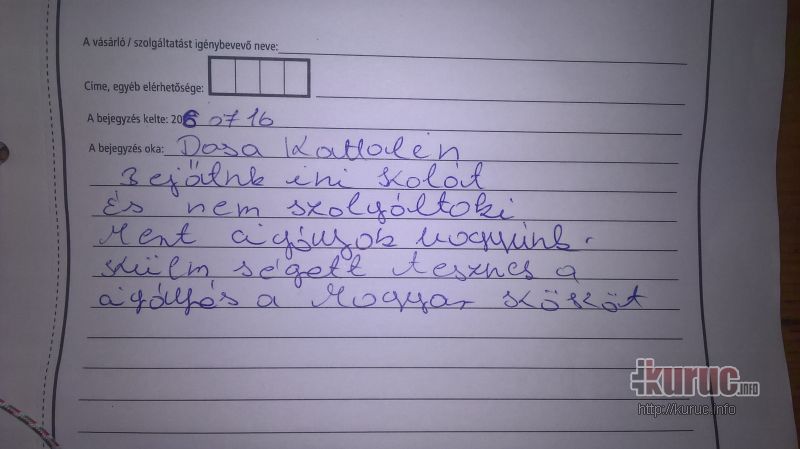 A vásárló / szolgáltatást igénybevevő neve:
Címe, egyéb elérhetősége:
A bejegyzés kelte: 206 07 16
A bejegyzés oka: Dosa Kattalén
Bejötnk ini skolót
És nem szolgóltoki
Ment a gógyok vogyünk.
skülm ségett tesznes a
a gógyós a Mogyar skösköt
kuruc.info
http://kuruc.info